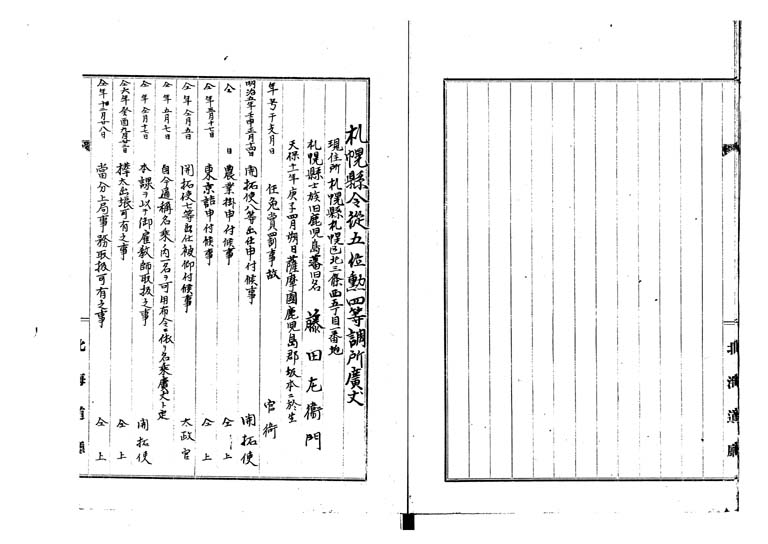 札幌縣令從五位勲四等調所廣丈
現住所札幌縣札幌区北三條西五丁目一番地
札幌縣士族旧鹿児島藩旧名 藤田左衞門
天保十一年庚子四月朔日薩摩國鹿児島郡坂本ニ於生
年号干支月日 任免賞罰事故 官衙
明治五年壬申三月十四日 開拓使八等出仕申付候事 開拓使
仝 日 農業掛申付候事 仝上
仝年三月十七日 東京詰申付候事 仝上
仝年仝月五日 開拓使七等出仕被仰付候事 太政官
仝年五月七日 自今通称名乘ノ内一名ヲ可用布令ニ依リ名乘廣丈ト定
仝年仝月十七日 本課ヲ以テ御雇教師取扱之事 開拓使
仝六年癸酉九月廿七日 樺太出張可有之事 仝上
仝年十二月廿八日 當分上局事務取扱可有之事 仝上
北海道廳